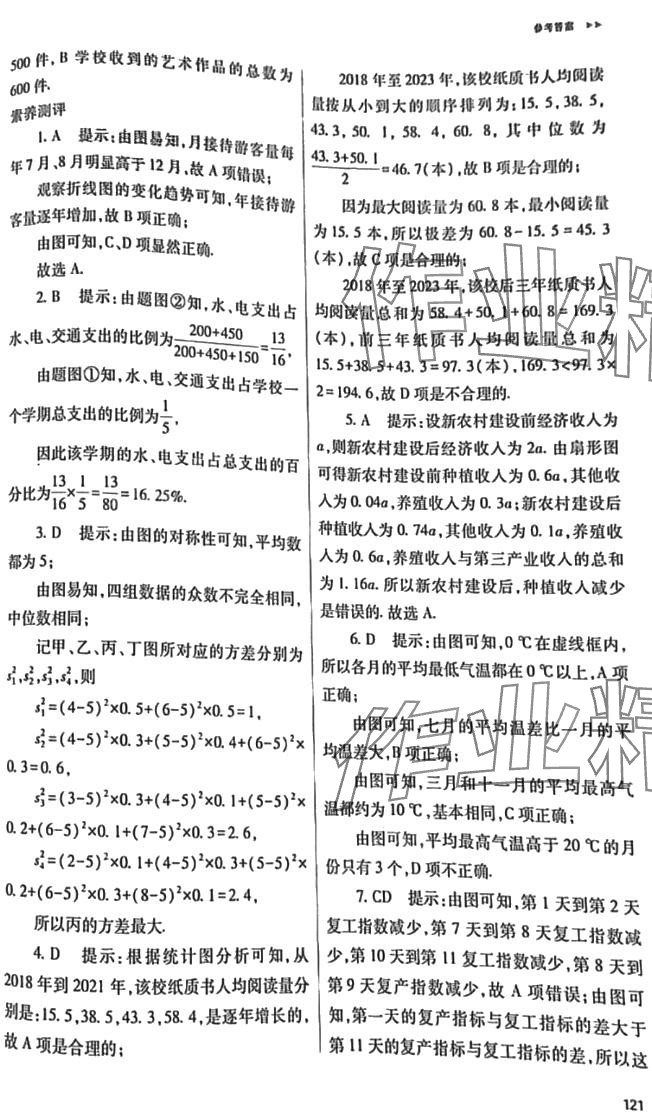 参考答案 ▶▶
500 件, B 学校收到的艺术作品的总数为
600 件.
素养测评
1. A 提示:由图易知,月接待游客量每
年 7 月、8 月明显高于 12 月,故 A 项错误;
观察折线图的变化趋势可知,年接待游
客量逐年增加,故 B 项正确;
由图可知,C、D 项显然正确.
故选 A.
2. B 提示:由题图②知,水、电支出占
水、电、交通支出的比例为 (200+450)/(200+450+150)=13/16,
由题图①知,水、电、交通支出占学校一
个学期总支出的比例为 1/5,
因此该学期的水、电支出占总支出的百
分比为 13/16×1/5=13/80=16.25%.
3. D 提示:由图的对称性可知,平均数
都为 5;
由图易知,四组数据的众数不完全相同,
中位数相同;
记甲、乙、丙、丁图所对应的方差分别为
s₁²,s₂²,s₃²,s₄²,则
s₁²=(4-5)²×0.5+(6-5)²×0.5=1,
s₂²=(4-5)²×0.3+(5-5)²×0.4+(6-5)²×
0.3=0.6,
s₃²=(3-5)²×0.3+(4-5)²×0.1+(5-5)²×
0.2+(6-5)²×0.1+(7-5)²×0.3=2.6,
s₄²=(2-5)²×0.1+(4-5)²×0.3+(5-5)²×
0.2+(6-5)²×0.3+(8-5)²×0.1=2.4,
所以丙的方差最大.
4. D 提示:根据统计图分析可知,从
2018 年到 2021 年,该校纸质书人均阅读量分
别是:15.5,38.5,43.3,58.4,是逐年增长的,
故 A 项是合理的;
2018 年至 2023 年,该校纸质书人均阅读
量按从小到大的顺序排列为:15.5,38.5,
43.3,50.1,58.4,60.8,其中位数为
(43.3+50.1)/2=46.7(本),故 B 项是合理的;
因为最大阅读量为 60.8 本,最小阅读量
为 15.5 本,所以极差为 60.8-15.5=45.3
(本),故 C 项是合理的;
2018 年至 2023 年,该校后三年纸质书人
均阅读量总和为 58.4+50.1+60.8=169.3
(本),前三年纸质书人均阅读量总和为
15.5+38.5+43.3=97.3(本),169.3<97.3×
2=194.6,故 D 项是不合理的.
5. A 提示:设新农村建设前经济收入为
a,则新农村建设后经济收入为 2a. 由扇形图
可得新农村建设前种植收入为 0.6a,其他收
入为 0.04a,养殖收入为 0.3a;新农村建设后
种植收入为 0.74a,其他收入为 0.1a,养殖收
入为 0.6a,养殖收入与第三产业收入的总和
为 1.16a. 所以新农村建设后,种植收入减少
是错误的. 故选 A.
6. D 提示:由图可知,0 ℃在虚线框内,
所以各月的平均最低气温都在 0 ℃以上,A 项
正确;
由图可知,七月的平均温差比一月的平
均温差大,B 项正确;
由图可知,三月和十一月的平均最高气
温都约为 10 ℃,基本相同,C 项正确;
由图可知,平均最高气温高于 20 ℃的月
份只有 3 个,D 项不正确.
7. CD 提示:由图可知,第 1 天到第 2 天
复工指数减少,第 7 天到第 8 天复工指数减
少,第 10 天到第 11 复工指数减少,第 8 天到
第 9 天复产指数减少,故 A 项错误;由图可
知,第一天的复产指标与复工指标的差大于
第 11 天的复产指标与复工指标的差,所以这
作业精
作业精
121